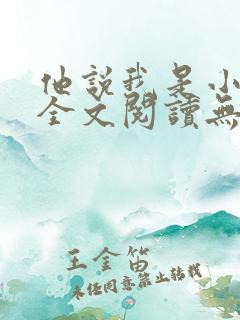 他說我是小
全文閱讀無
王金笛
未经同意禁止转载